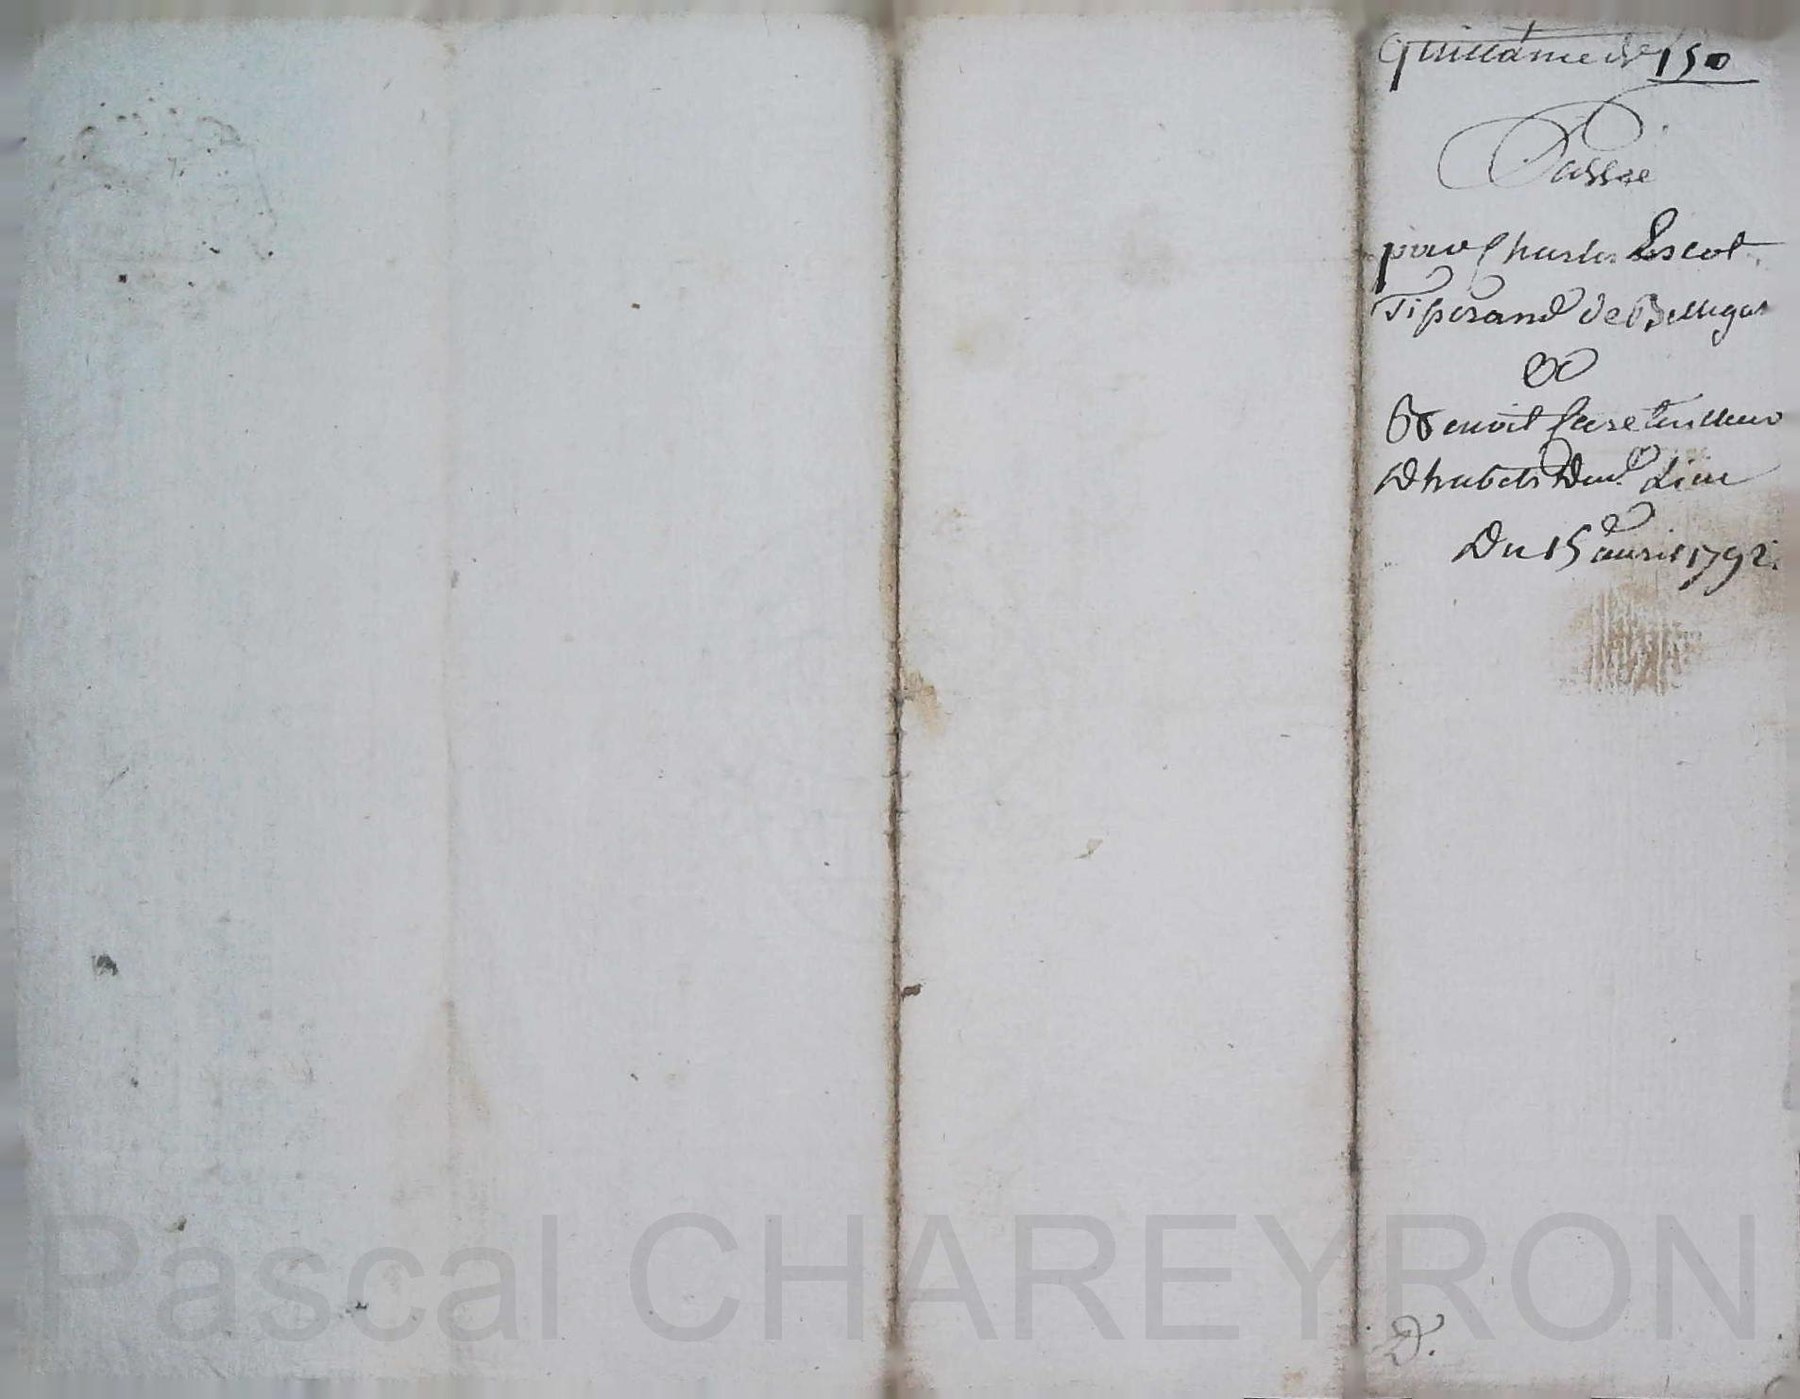 Quittance de 150
Passée
pour Charles Escot
Tisserand de Bellegar
&
Benoit tailleur
D'habits Dud. Lieu
Du 15 avril 1792.
D.
Pascal CHAREYRON